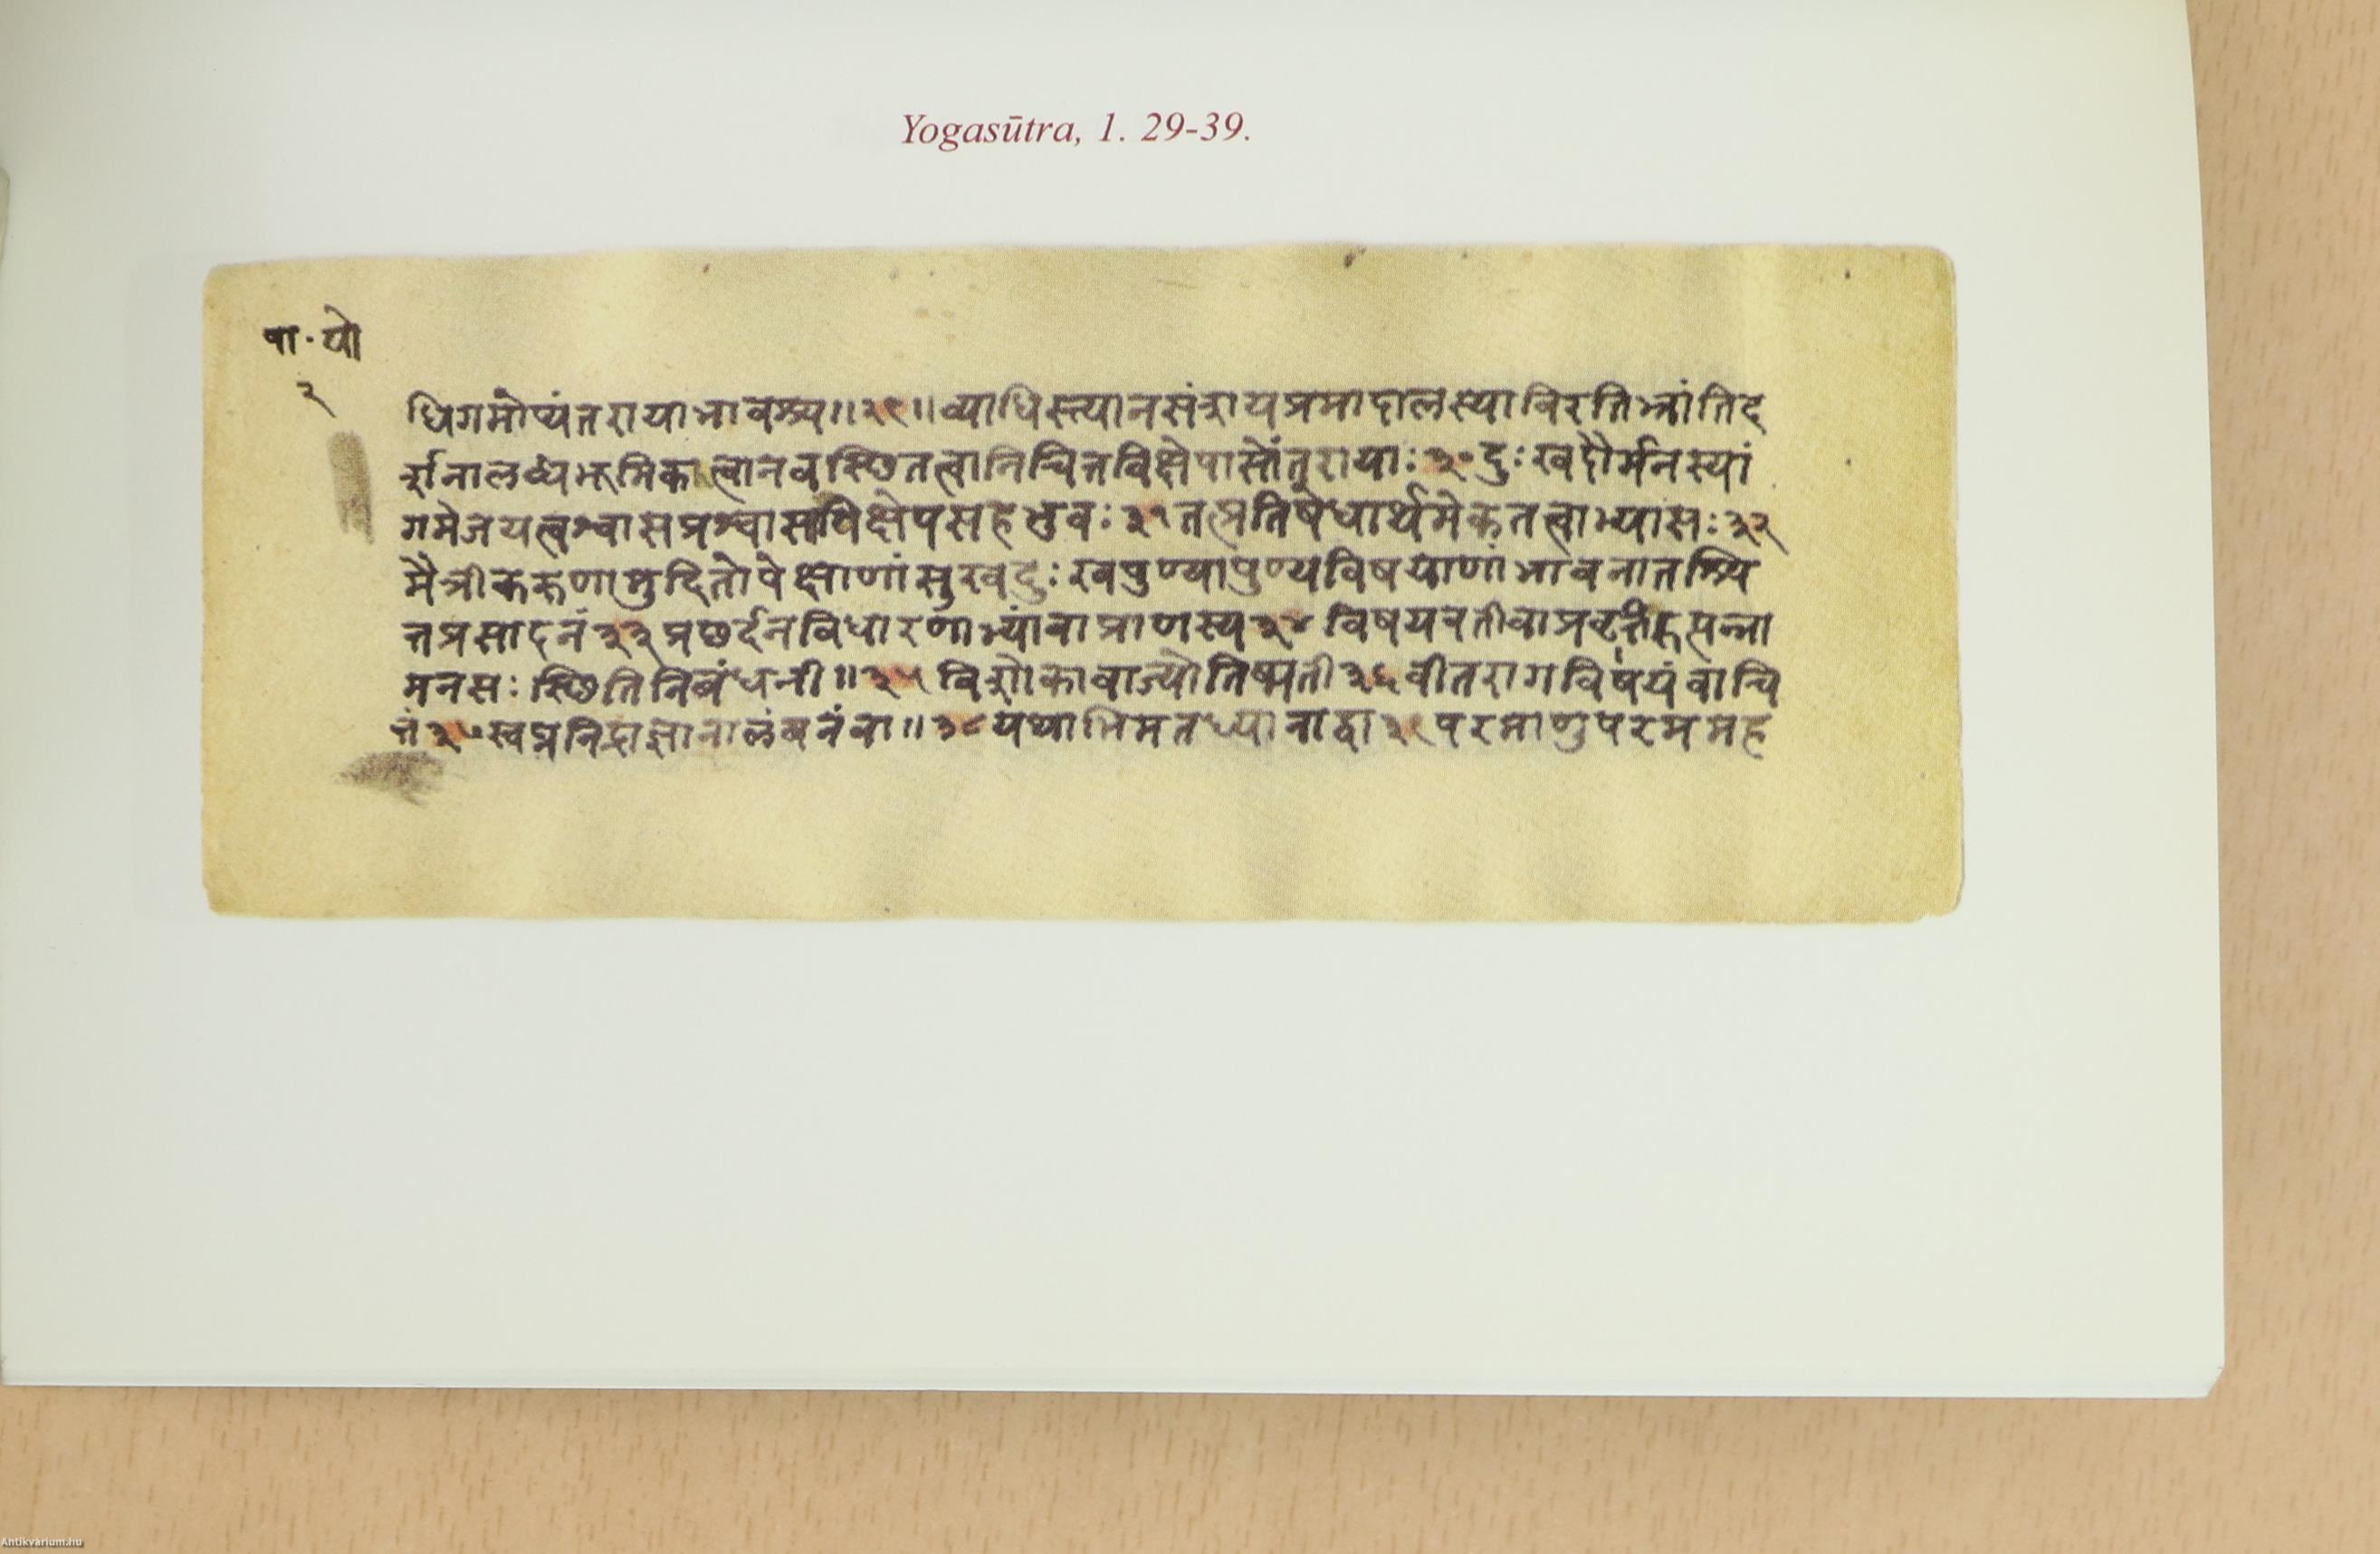 Yogasūtra, 1. 29-39.
पा · यो
२
धिगमोप्यंतरायाभावश्च॥२९॥व्याधिस्त्यानसंशयप्रमादालस्याविरतिभ्रांतिद
र्शनालब्धभूमिकात्वानवस्थितत्वानिचित्तविक्षेपास्तेंतरायाः३०दुःखदौर्मनस्यां
गमेजयत्वश्वासप्रश्वासविक्षेपसहभुवः३१तत्प्रतिषेधार्थमेकतत्वाभ्यासः३२
मैत्रीकरुणामुदितोपेक्षाणांसुखदुःखपुण्यापुण्यविषयाणांभावनातश्चि
त्तप्रसादनं३३प्रछर्दनविधारणाभ्यांवाप्राणस्य३४विषयवतीवाप्रवृत्तिरुत्पन्ना
मनसःस्थितिनिबंधनी॥३५विशोकावाज्योतिष्मती३६वीतरागविषयंवाचि
त्तं३७स्वप्ननिद्राज्ञानालंबनंवा॥३८यथाभिमतध्यानाद्वा३९परमाणुपरममह
Antikvarium.hu